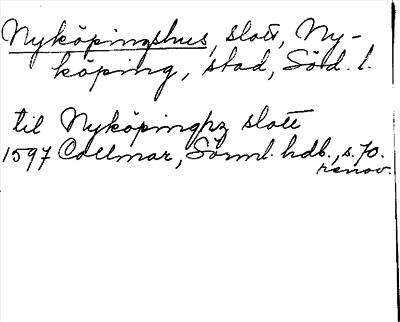 Nyköpingshus, slott, Ny-
köping, stad, Söd. l.
til Nyköpinghz slott
1597 Collmar, Sörml. hdb., s. 70.
renov.